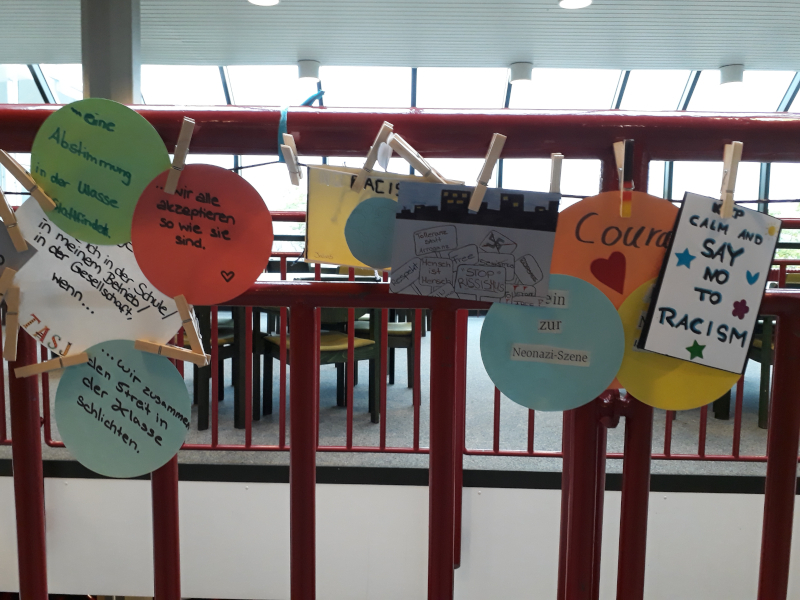 - eine
Abstimmung
in der Klasse
stattfindet
... Wir alle
akzeptieren
so wie sie
sind.
ich in der Schule/
in meinem Betrieb/
in der Gesellschaft,
wenn...
... Wir zusammen
den Streit in
der Klasse
schlichten.
Mensch
ist
Mensch
free
STOP
RASSISMUS
zur
Neonazi-Szene
KEEP
CALM AND
SAY
NO
TO
RACISM